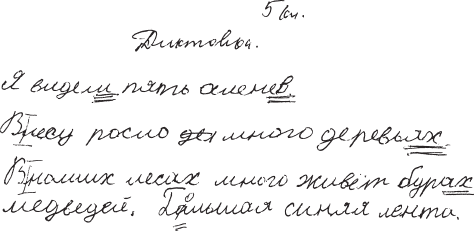 5 кл.
Диктовка.
Я видели пять оленев.
Влесу росло много деревьях
Внаших лесах много живёт бурах
медведей. Большая синяя лента.